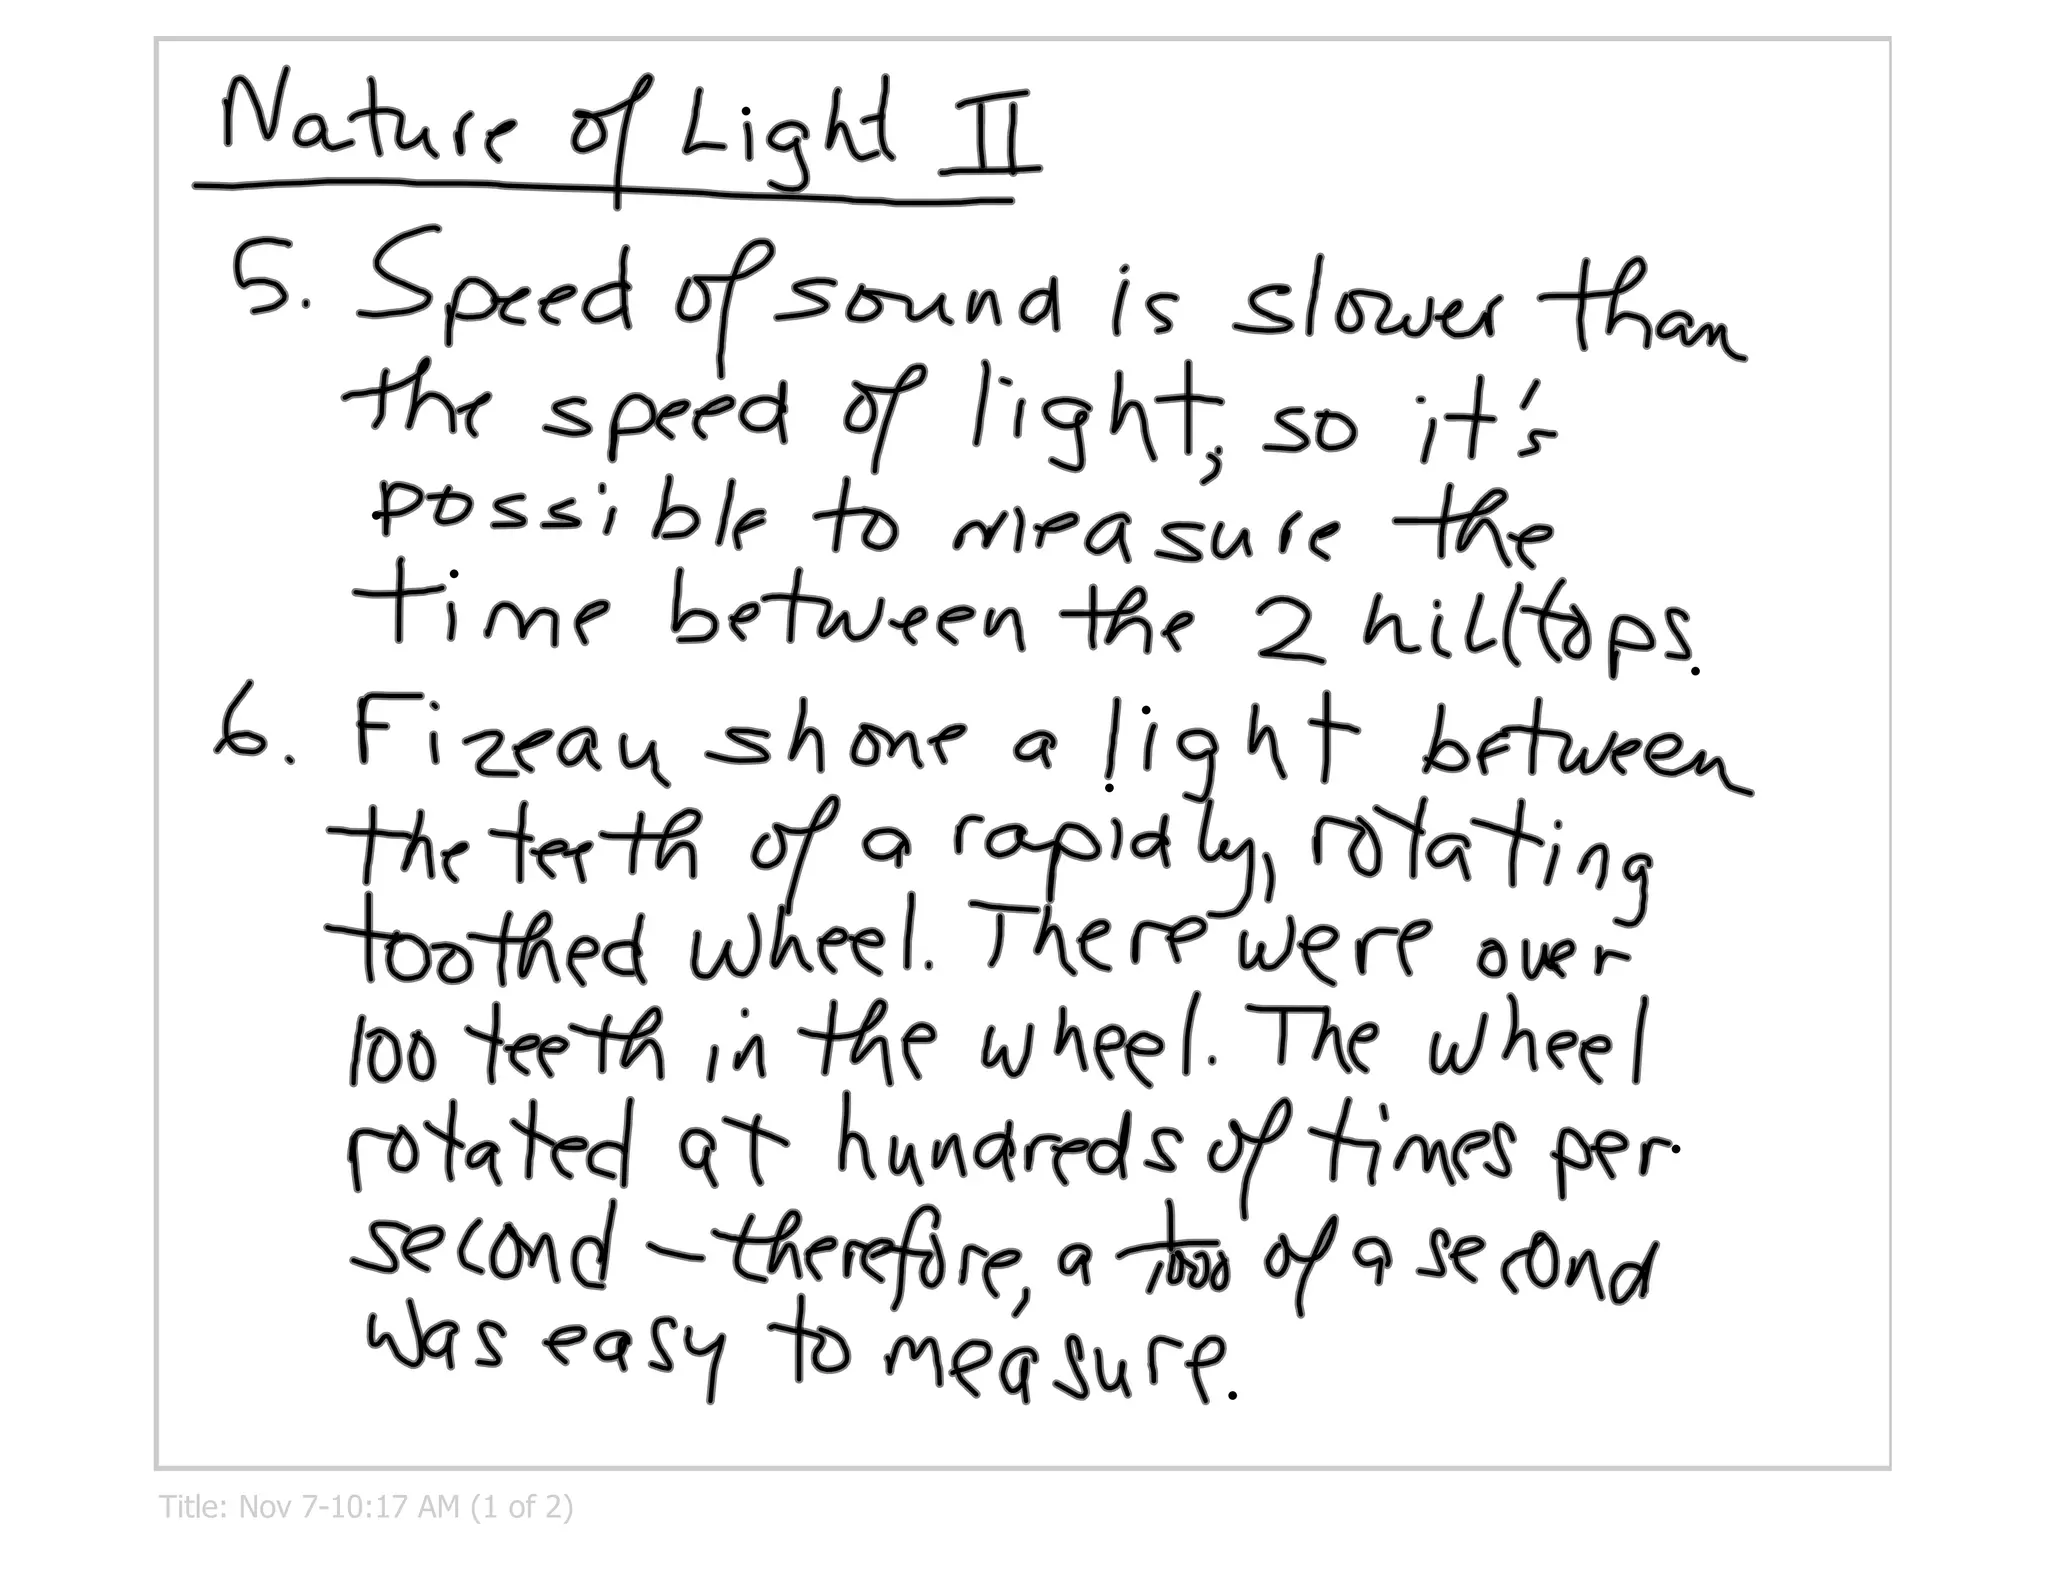 Nature of Light II
5. Speed of sound is slower than
the speed of light, so it's
possible to measure the
time between the 2 hilltops.
6. Fizeau shone a light between
the teeth of a rapidly, rotating
toothed wheel. There were over
100 teeth in the wheel. The wheel
rotated at hundreds of times per
second – therefore, a 1/1000 of a second
was easy to measure.
Title: Nov 7-10:17 AM (1 of 2)